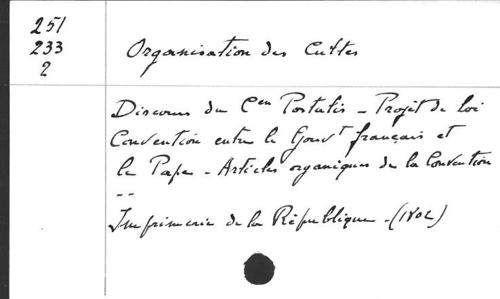 251
233
2
Organisation des Cultes
Discours du Cen Portalis - Projet de loi
Convention entre le Gouvt français et
le Pape - Articles organiques de la Convention
--
Imprimerie de la République - (1802)